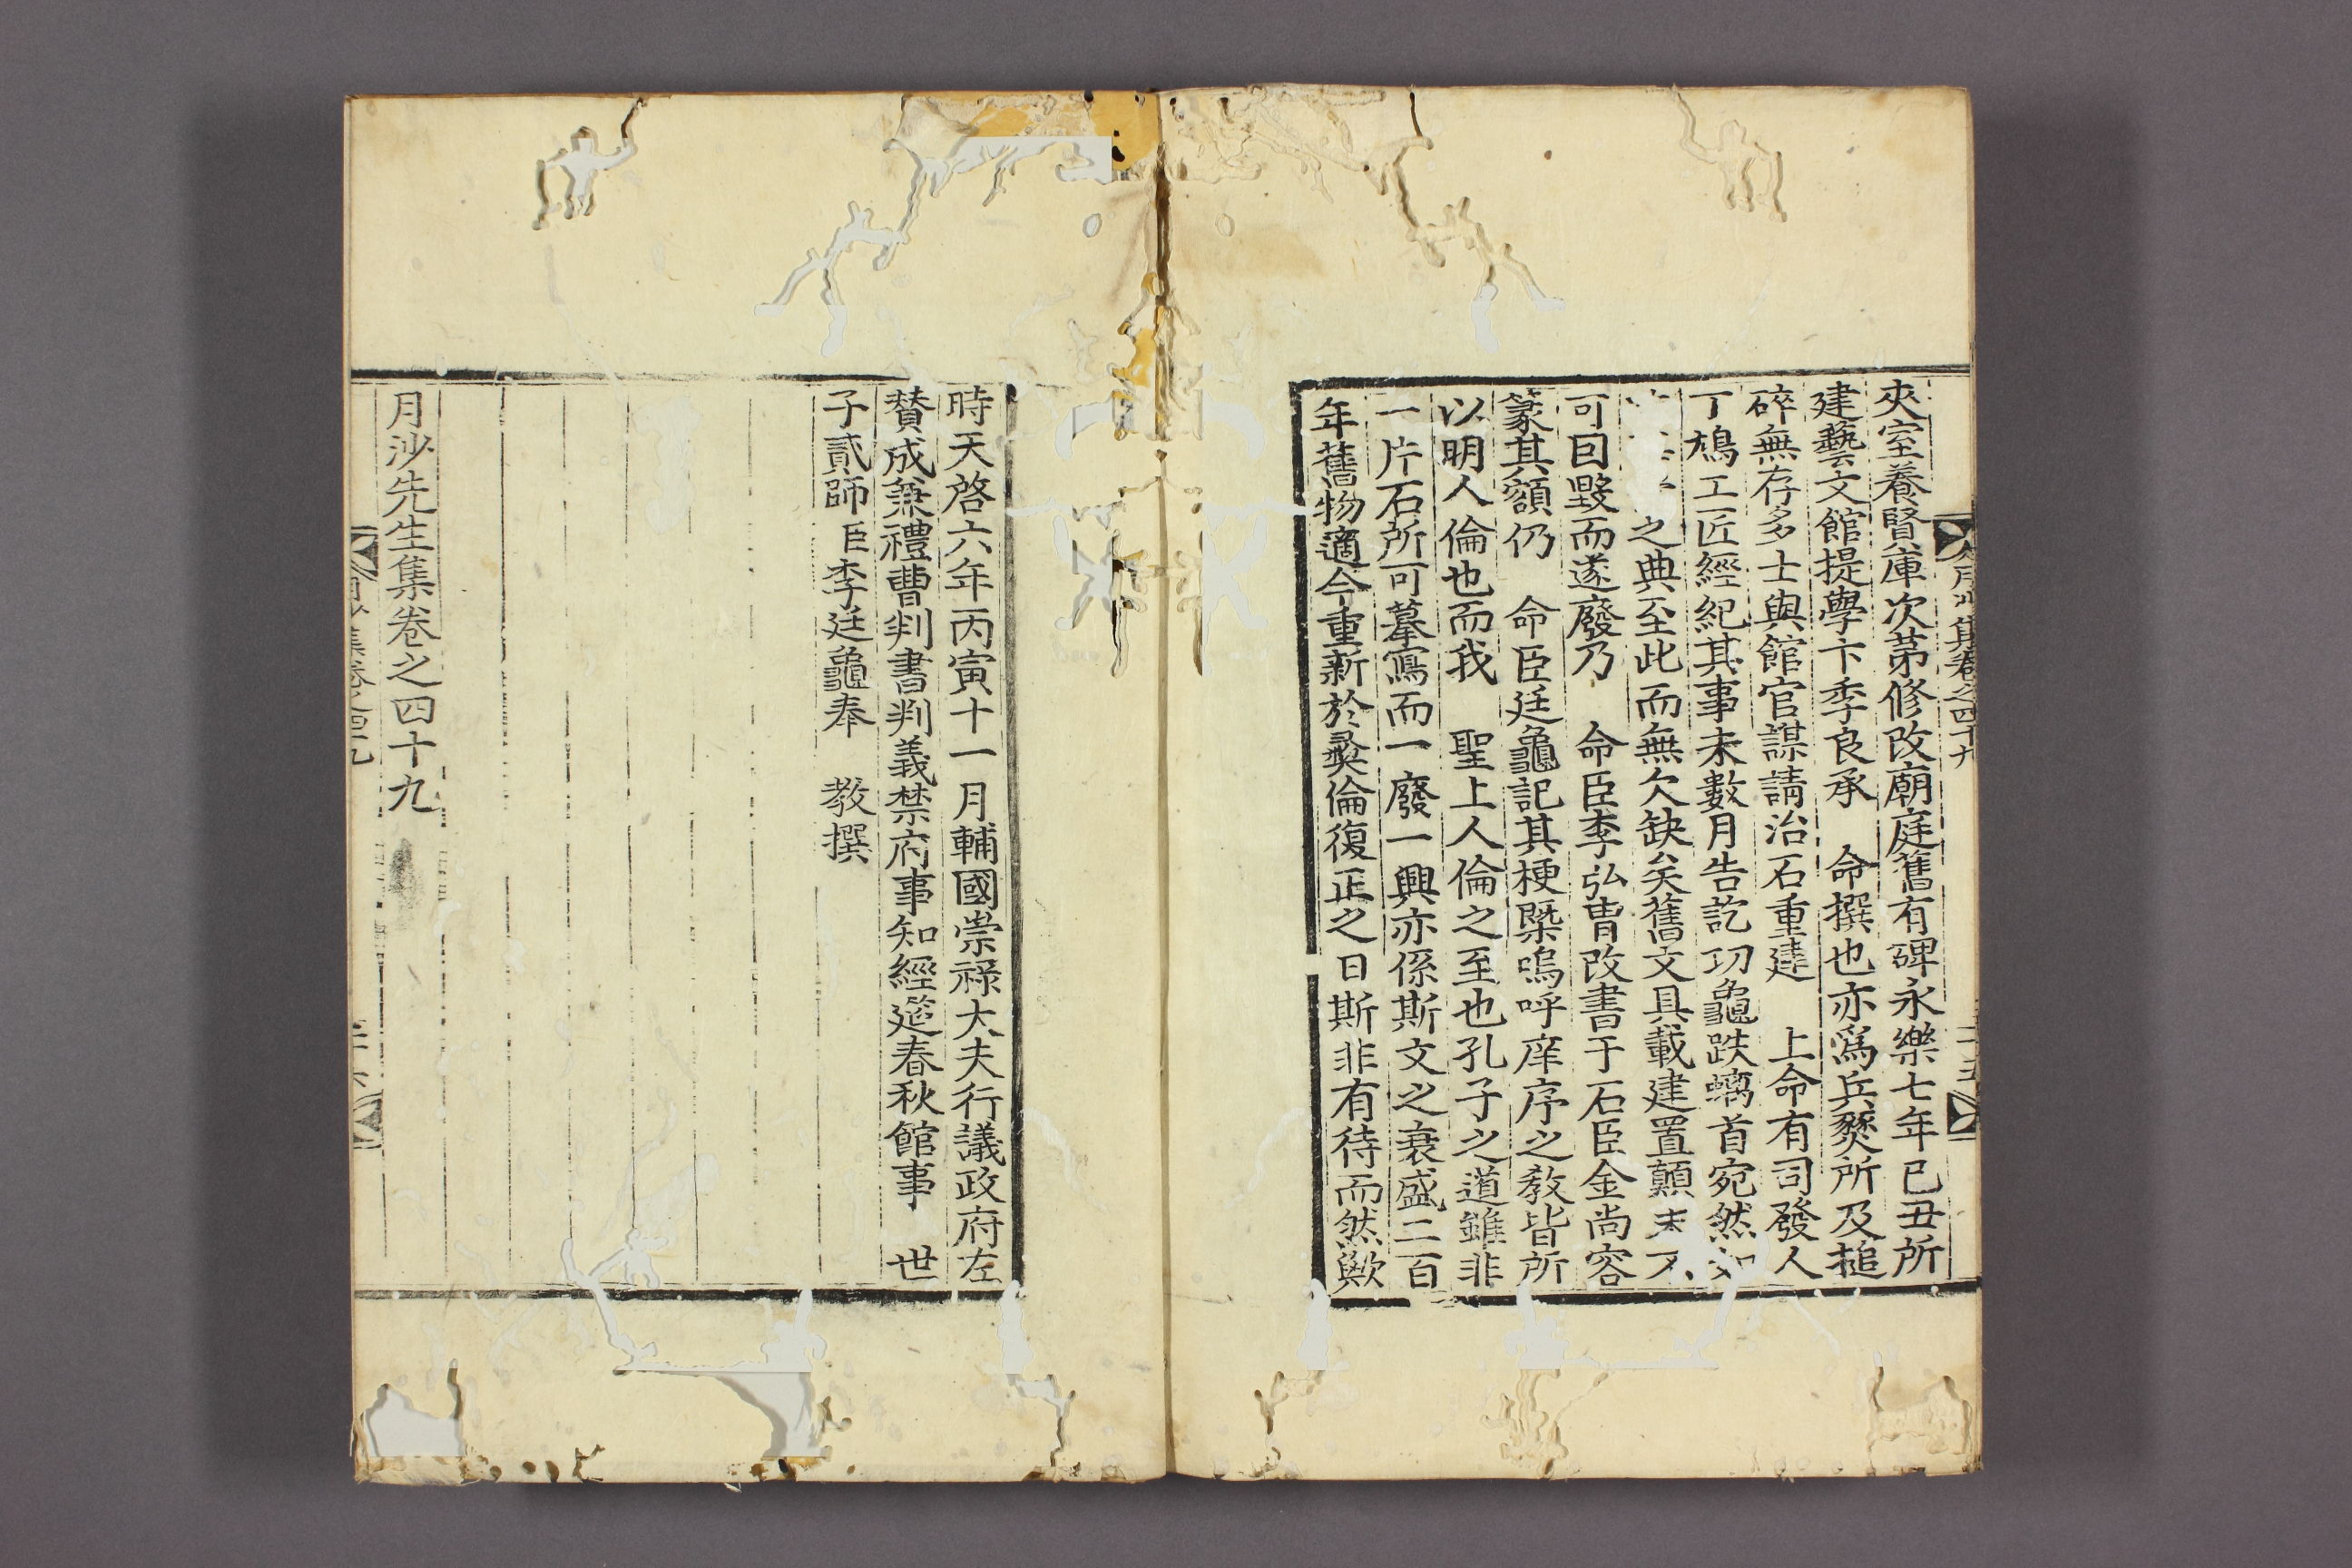 月沙集卷之四十九
夾室養賢庫次第修改廟庭舊有碑永樂七年已丑所
建藝文館提學卞季良承 命撰也亦爲兵燹所及搥
碎無存多士與館官謀請治石重建 上命有司發人
丁鳩工匠經紀其事未數月告訖功龜趺螭首宛然如
之典至此而無欠缺矣舊文具載建置顛末不
可回毀而遂廢乃 命臣李弘冑改書于石臣金尚容
篆其額仍 命臣廷龜記其梗槩嗚呼庠序之教皆所
以明人倫也而我 聖上人倫之至也孔子之道雖非
一片石所可摹寫而一廢一興亦係斯文之衰盛二百
年舊物適今重新於彜倫復正之日斯非有待而然歟
時天啓六年丙寅十一月輔國崇祿大夫行議政府左
賛成兼禮曹判書判義禁府事知經筵春秋館事 世
子貳師臣李廷龜奉 教撰
月沙先生集卷之四十九